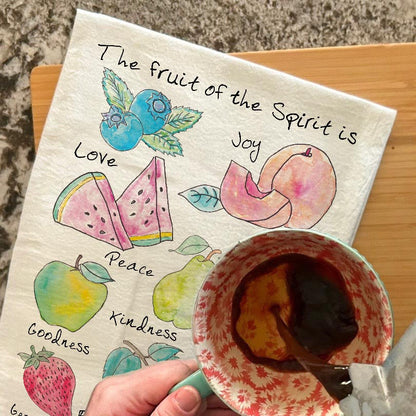 The fruit of the Spirit is
Love
Joy
Peace
Goodness
Kindness